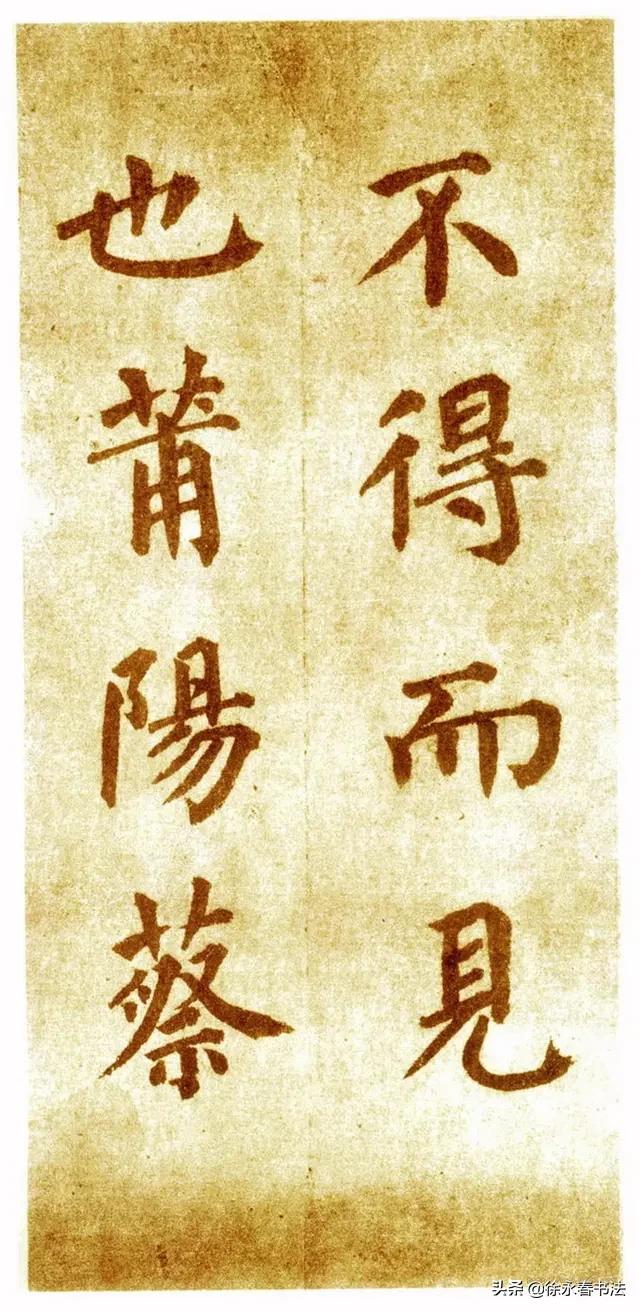 不得而見
也莆陽蔡
头条 @徐永春书法